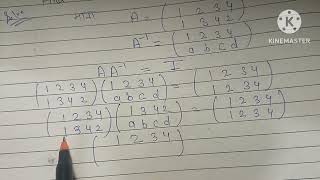 माना A = (1 2 3 4
1 3 4 2)
A⁻¹ = (1 2 3 4
a b c d)
A A⁻¹ = I
(1 2 3 4 (1 2 3 4 = (1 2 3 4
1 3 4 2) a b c d) 1 2 3 4)
(1 2 3 4 (1 3 4 2 = (1 2 3 4
1 3 4 2) a b c d) 1 2 3 4)
(1 2 3 4)
KINEMASTER